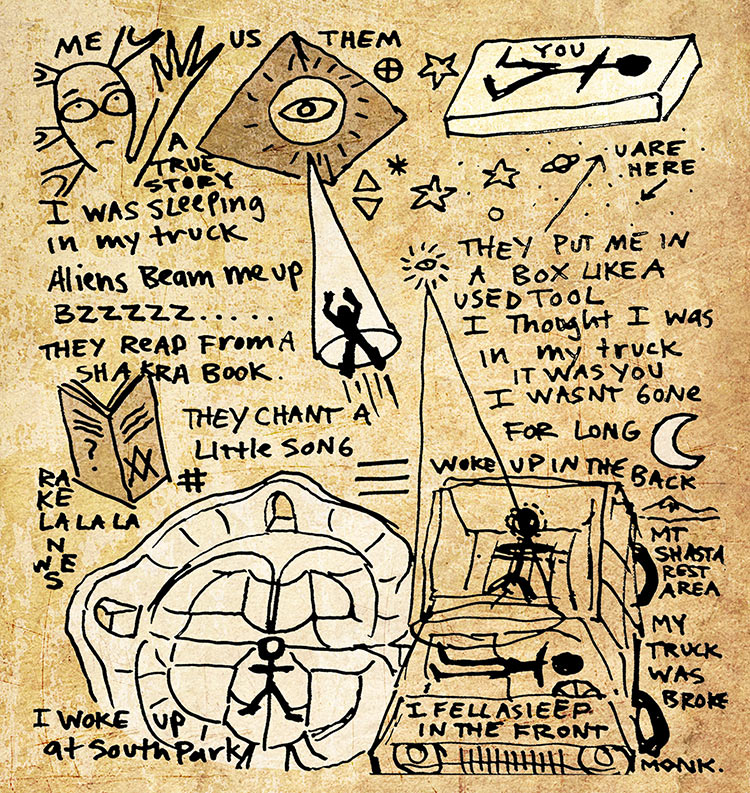 ME US THEM
YOU
A
TRUE
STORY
I WAS SLEEPING
in my truck
Aliens Beam me up
BZZZZZ.....
THEY READ From A
SHAKRA BOOK.
?
XX
THEY CHANT A
Little SONG
#
RA
KE
LA LA LA
N
W E
S
I WOKE UP
at South Park
U ARE
HERE
THEY PUT ME IN
A BOX LIKE A
USED TOOL
I Thought I WAS
in my truck
IT WAS YOU
I WASNT GONE
FOR LONG
WOKE UP IN THE BACK
MT
SHASTA
REST
AREA
MY
TRUCK
WAS
BROKE
I FELL ASLEEP
IN THE FRONT
MONK.